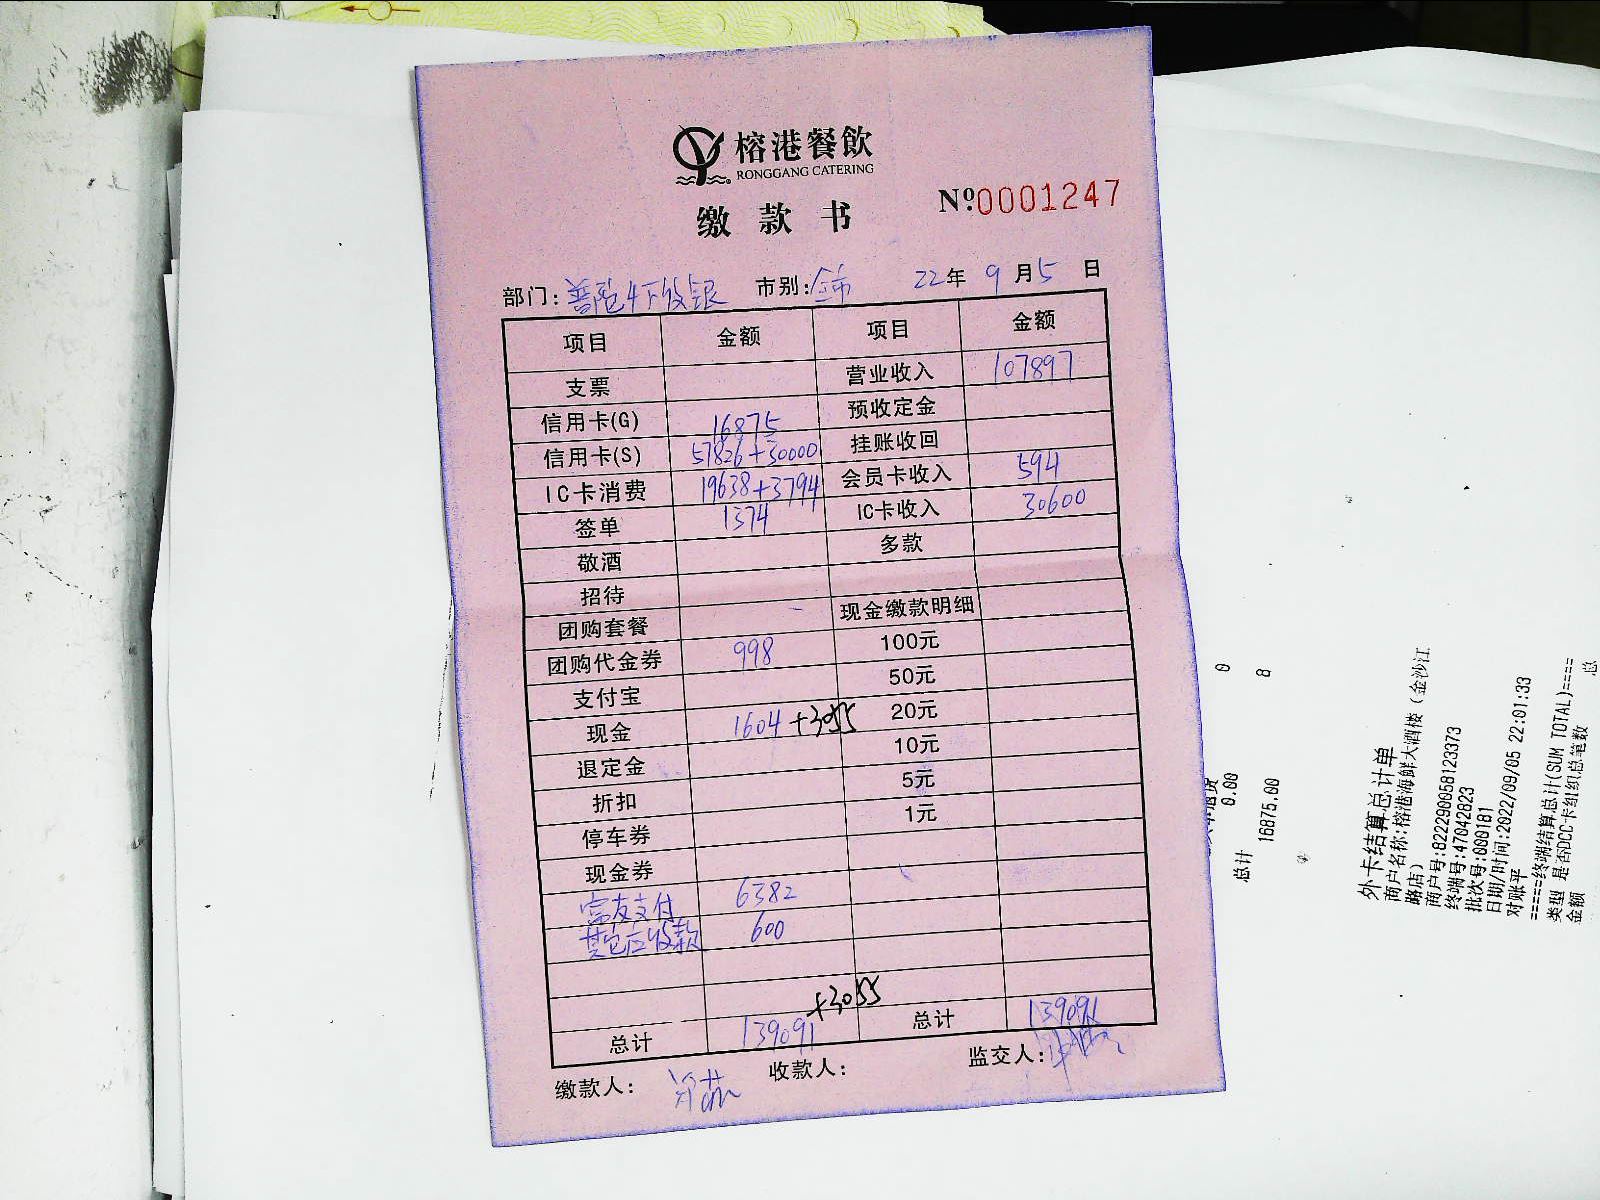 榕港餐飲
RONGGANG CATERING
缴款书
№0001247
部门: 市别: 22年 9月5日
项目 金额 项目 金额
支票 营业收入 107897
信用卡(G) 16875 预收定金
信用卡(S) 57826+30000 挂账收回
IC卡消费 19638+3794 会员卡收入 594
签单 1374 IC卡收入 30600
敬酒 多款
招待
团购套餐 现金缴款明细
团购代金券 998 100元
支付宝 50元
现金 1604 +3055 20元
退定金 10元
折扣 5元
停车券 1元
现金券
富友支付 6382
其它应收款 600
+3055
总计 139091 总计 139091
缴款人: 收款人: 监交人:
0
8
0.00
总计 16875.00
外卡结算总计单
商户名称:榕港海鲜大酒楼(金沙江
路店)
商户号:822290058123373
终端号:47042823
批次号:000181
日期/时间:2022/09/05 22:01:33
对账平
=====终端结算总计(SUM TOTAL)====
类型 是否DCC卡组织总笔数 总
金额